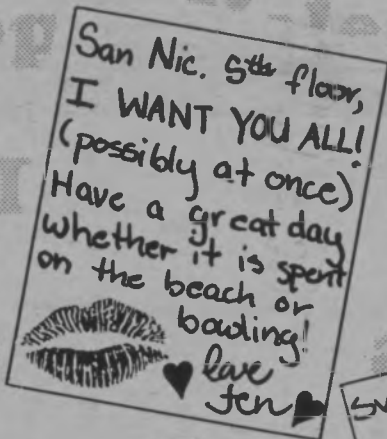 San Nic. 5th floor,
I WANT YOU ALL!
(possibly at once)
Have a great day
whether it is spent
on the beach or
bowling!
love
Jen